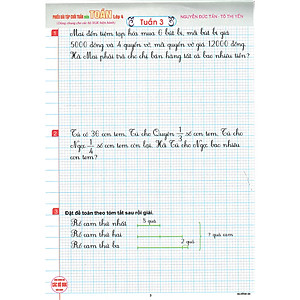 PHIẾU BÀI TẬP CUỐI TUẦN MÔN TOÁN Lớp 4
Tuần 3
NGUYỄN ĐỨC TẤN - TÔ THỊ YẾN
1
Mai đến tiệm tạp hóa mua 6 bút bi, mỗi bút bi giá
5000 đồng và 4 quyển vở, mỗi quyển vở giá 12000 đồng.
Hỏi Mai phải trả cho chủ bán hàng tất cả bao nhiêu tiền?
2
Tú có 36 con tem. Tú cho Quyên 1/3 số con tem. Tú cho
Ngọc 1/4 số con tem còn lại. Hỏi Tú cho Ngọc bao nhiêu
con tem?
3
Đặt đề toán theo tóm tắt sau rồi giải.
5 quả
Rổ cam thứ nhất
Rổ cam thứ hai
? quả cam
2 quả
Rổ cam thứ ba